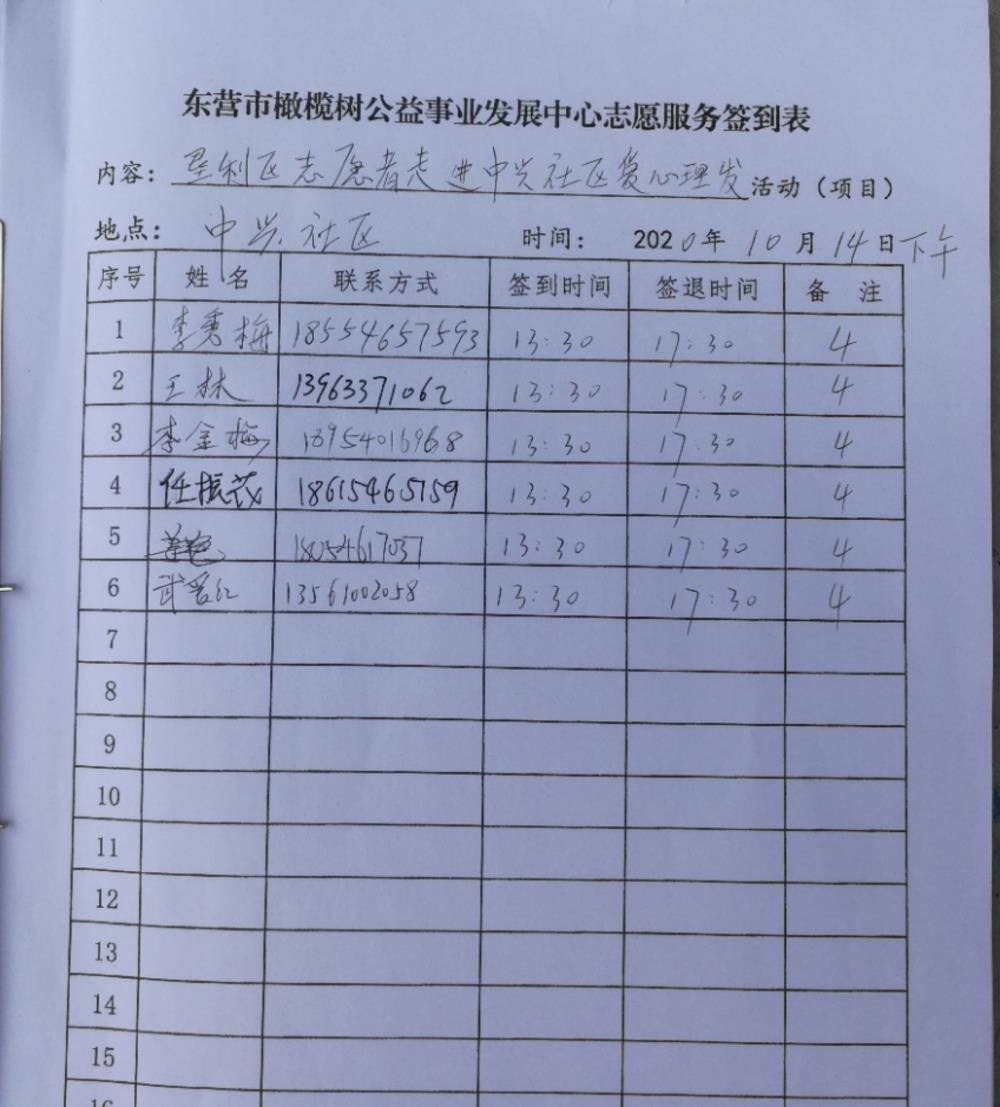 东营市橄榄树公益事业发展中心志愿服务签到表
内容：垦利区志愿者走进中兴社区爱心理发活动（项目）
地点：中兴社区 时间：2020年10月14日下午
序号 姓名 联系方式 签到时间 签退时间 备注
1 李秀梅 18554657593 13:30 17:30 4
2 王林 13963371062 13:30 17:30 4
3 李金梅 18954016968 13:30 17:30 4
4 任振茂 18615465159 13:30 17:30 4
5 18054617037 13:30 17:30 4
6 武爱红 13561002058 13:30 17:30 4
7
8
9
10
11
12
13
14
15
16